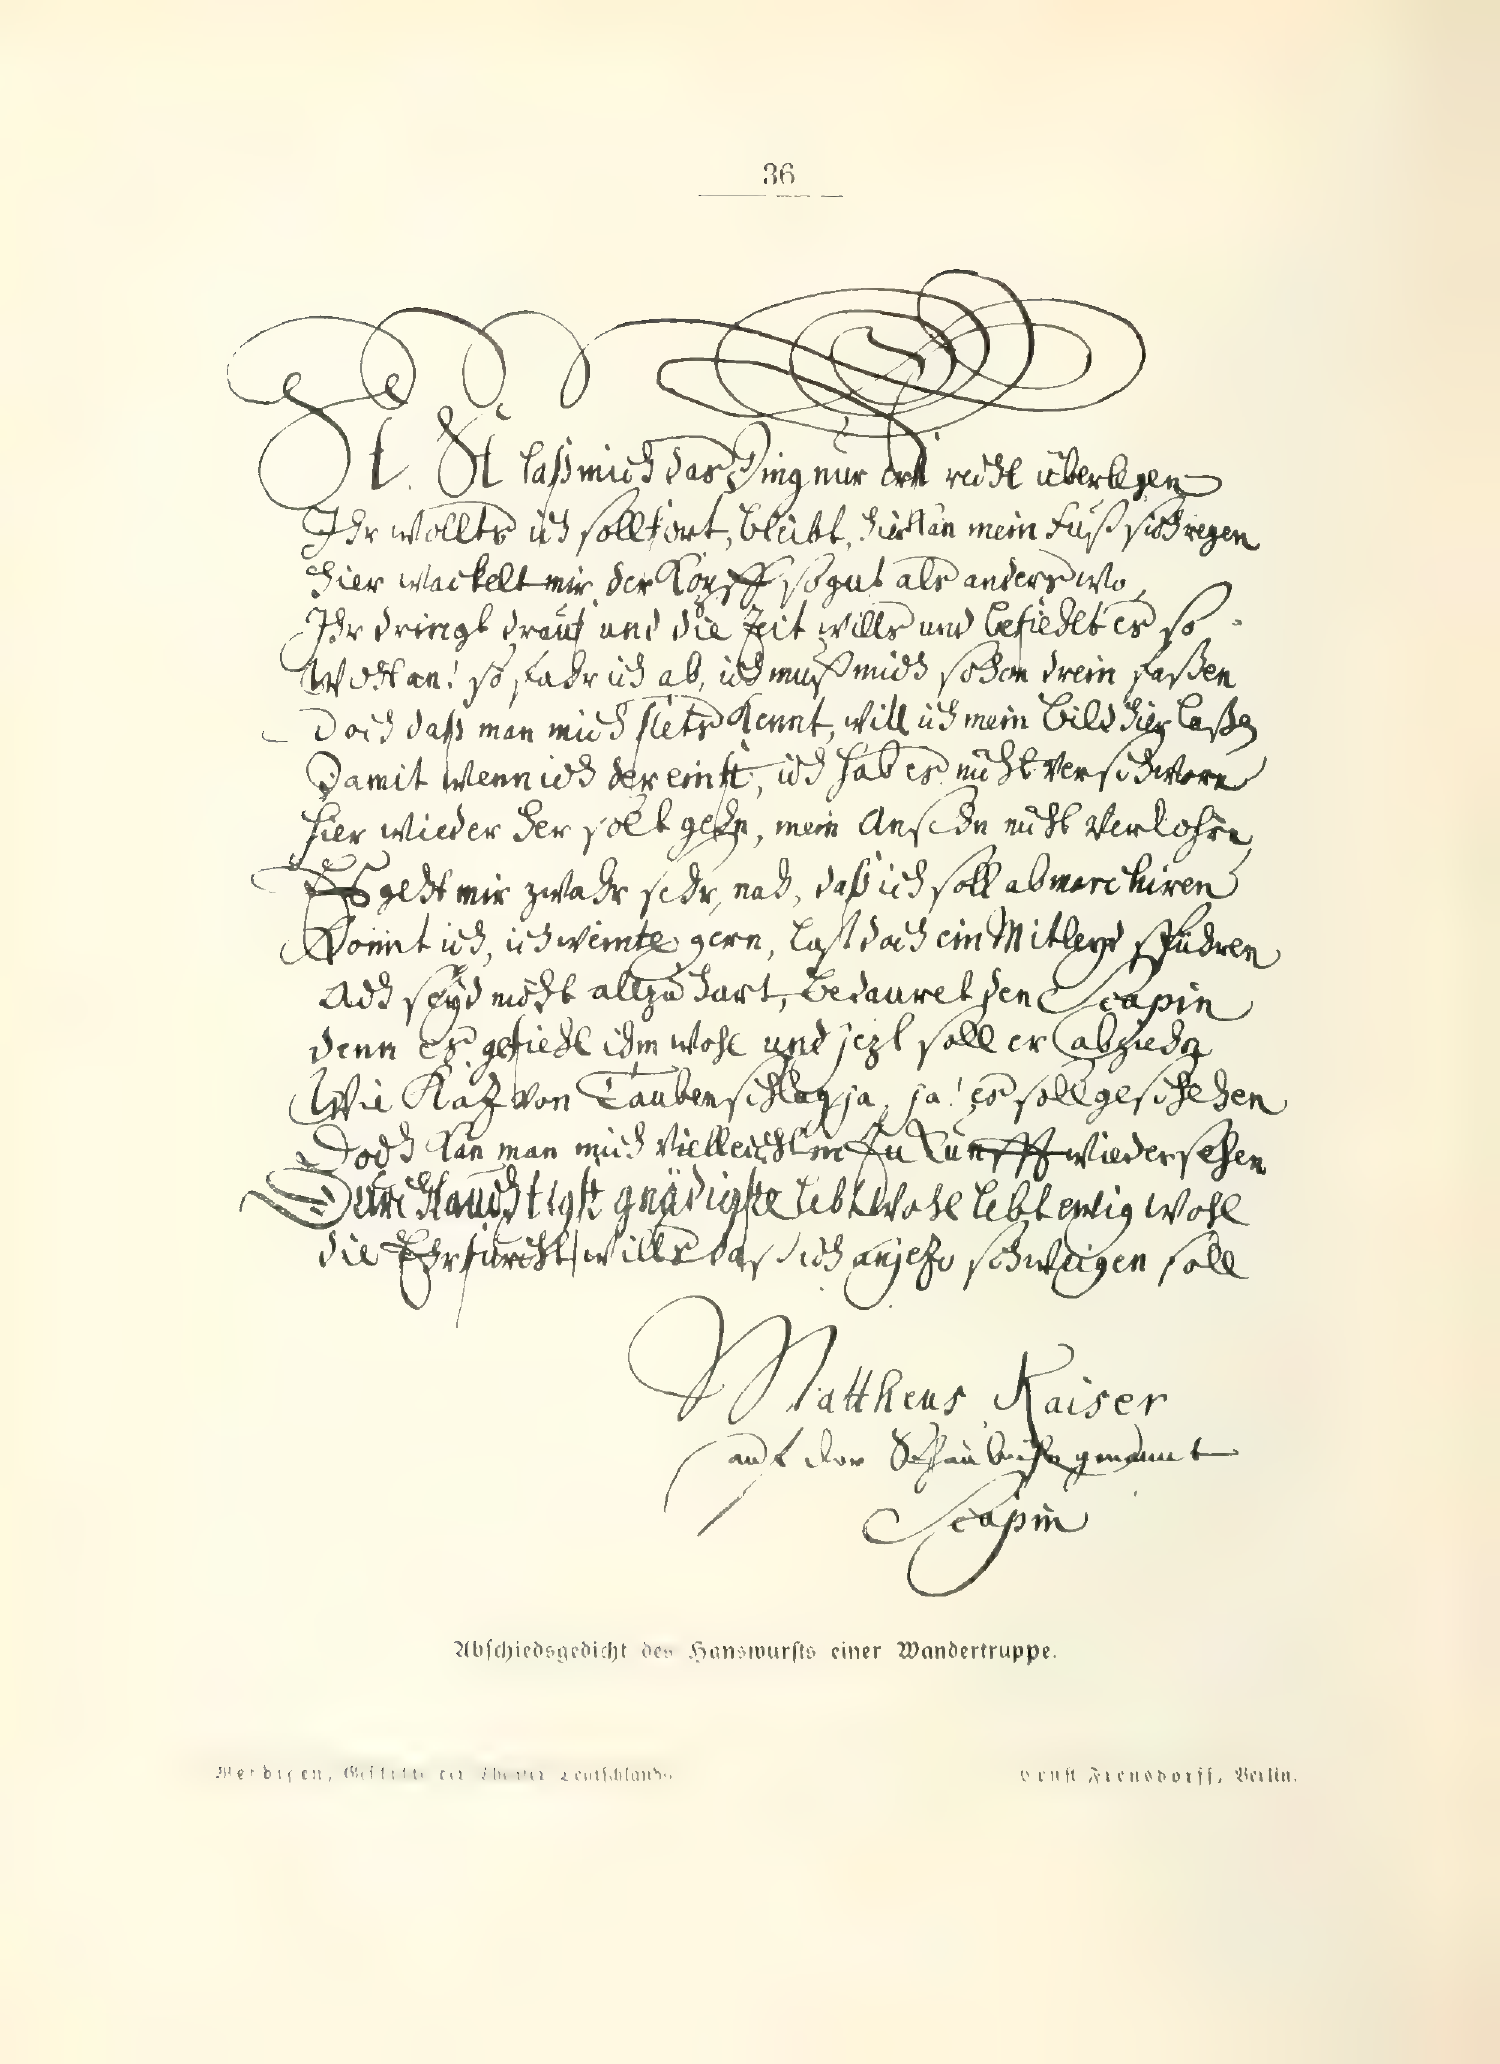 36
St. St laß mich das Ding nur erst recht überlegen
Ihr wollts ich soll fort, bleibt, hier kan mein Fuß sich regen
hier wackelt mir der Kopff so gut als anderswo,
Ihr dringt drauf und die Zeit wills und befiehlt es so
Wohl an! so fahr ich ab, ich muß mich schon drein faßen
Doch daß man mich stets kennt, will ich mein Bild hier laßen
Damit wenn ich dereinst, ich hab es nicht verschworen
hier wieder her solt gehn, mein Ansehn nicht verlohren
Es geht mir zwahr sehr nah, daß ich soll abmarchiren
Könnt ich, ich weinte gern, last doch ein Mitleyd spühren
Ach seyd nicht allzu hart, bedauret den Scapin
denn es gefiehl ihm wohl und jezt soll er abziehn
Wie Kaz von Taubenschlag ja, ja! es soll geschehen
Doch kan man mich vielleicht in Zukunfft wiedersehen
Durchlauchtigst gnädigste lebt wohl lebt ewig wohl
die Ehrfurcht wills das ich anjezo schweigen soll
Mattheus Kaiser
auf der Schaubühn genannt
Scapin
Abschiedsgedicht des Hanswursts einer Wandertruppe.
der Theater Deutschlands.
Ernst Frensdorff, Berlin.